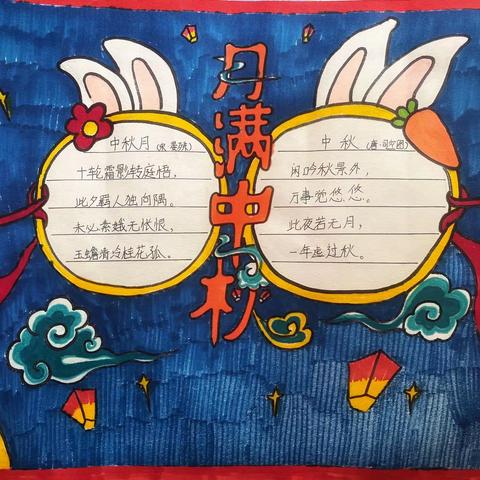 月满中秋
中秋月 (宋·晏殊)
十轮霜影转庭梧，
此夕羁人独向隅。
未必素娥无怅恨，
玉蟾清冷桂花孤。
中秋 (唐·司空图)
闲吟秋景外，
万事觉悠悠。
此夜若无月，
一年虚过秋。